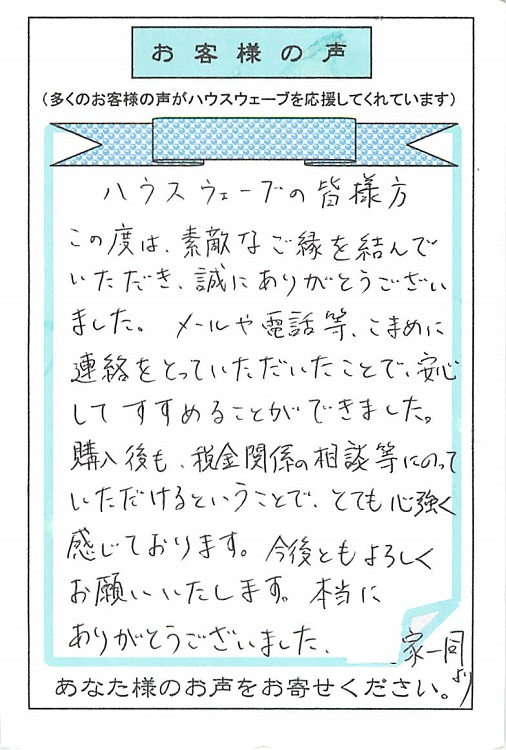 お客様の声
(多くのお客様の声がハウスウェーブを応援してくれています)
ハウスウェーブの皆様方
この度は、素敵なご縁を結んで
いただき、誠にありがとうござい
ました。メールや電話等、こまめに
連絡をとっていただいたことで、安心
してすすめることができました。
購入後も、税金関係の相談等にのって
いただけるということで、とても心強く
感じております。今後ともよろしく
お願いいたします。本当に
ありがとうございました、
家一同
より
あなた様のお声をお寄せください。